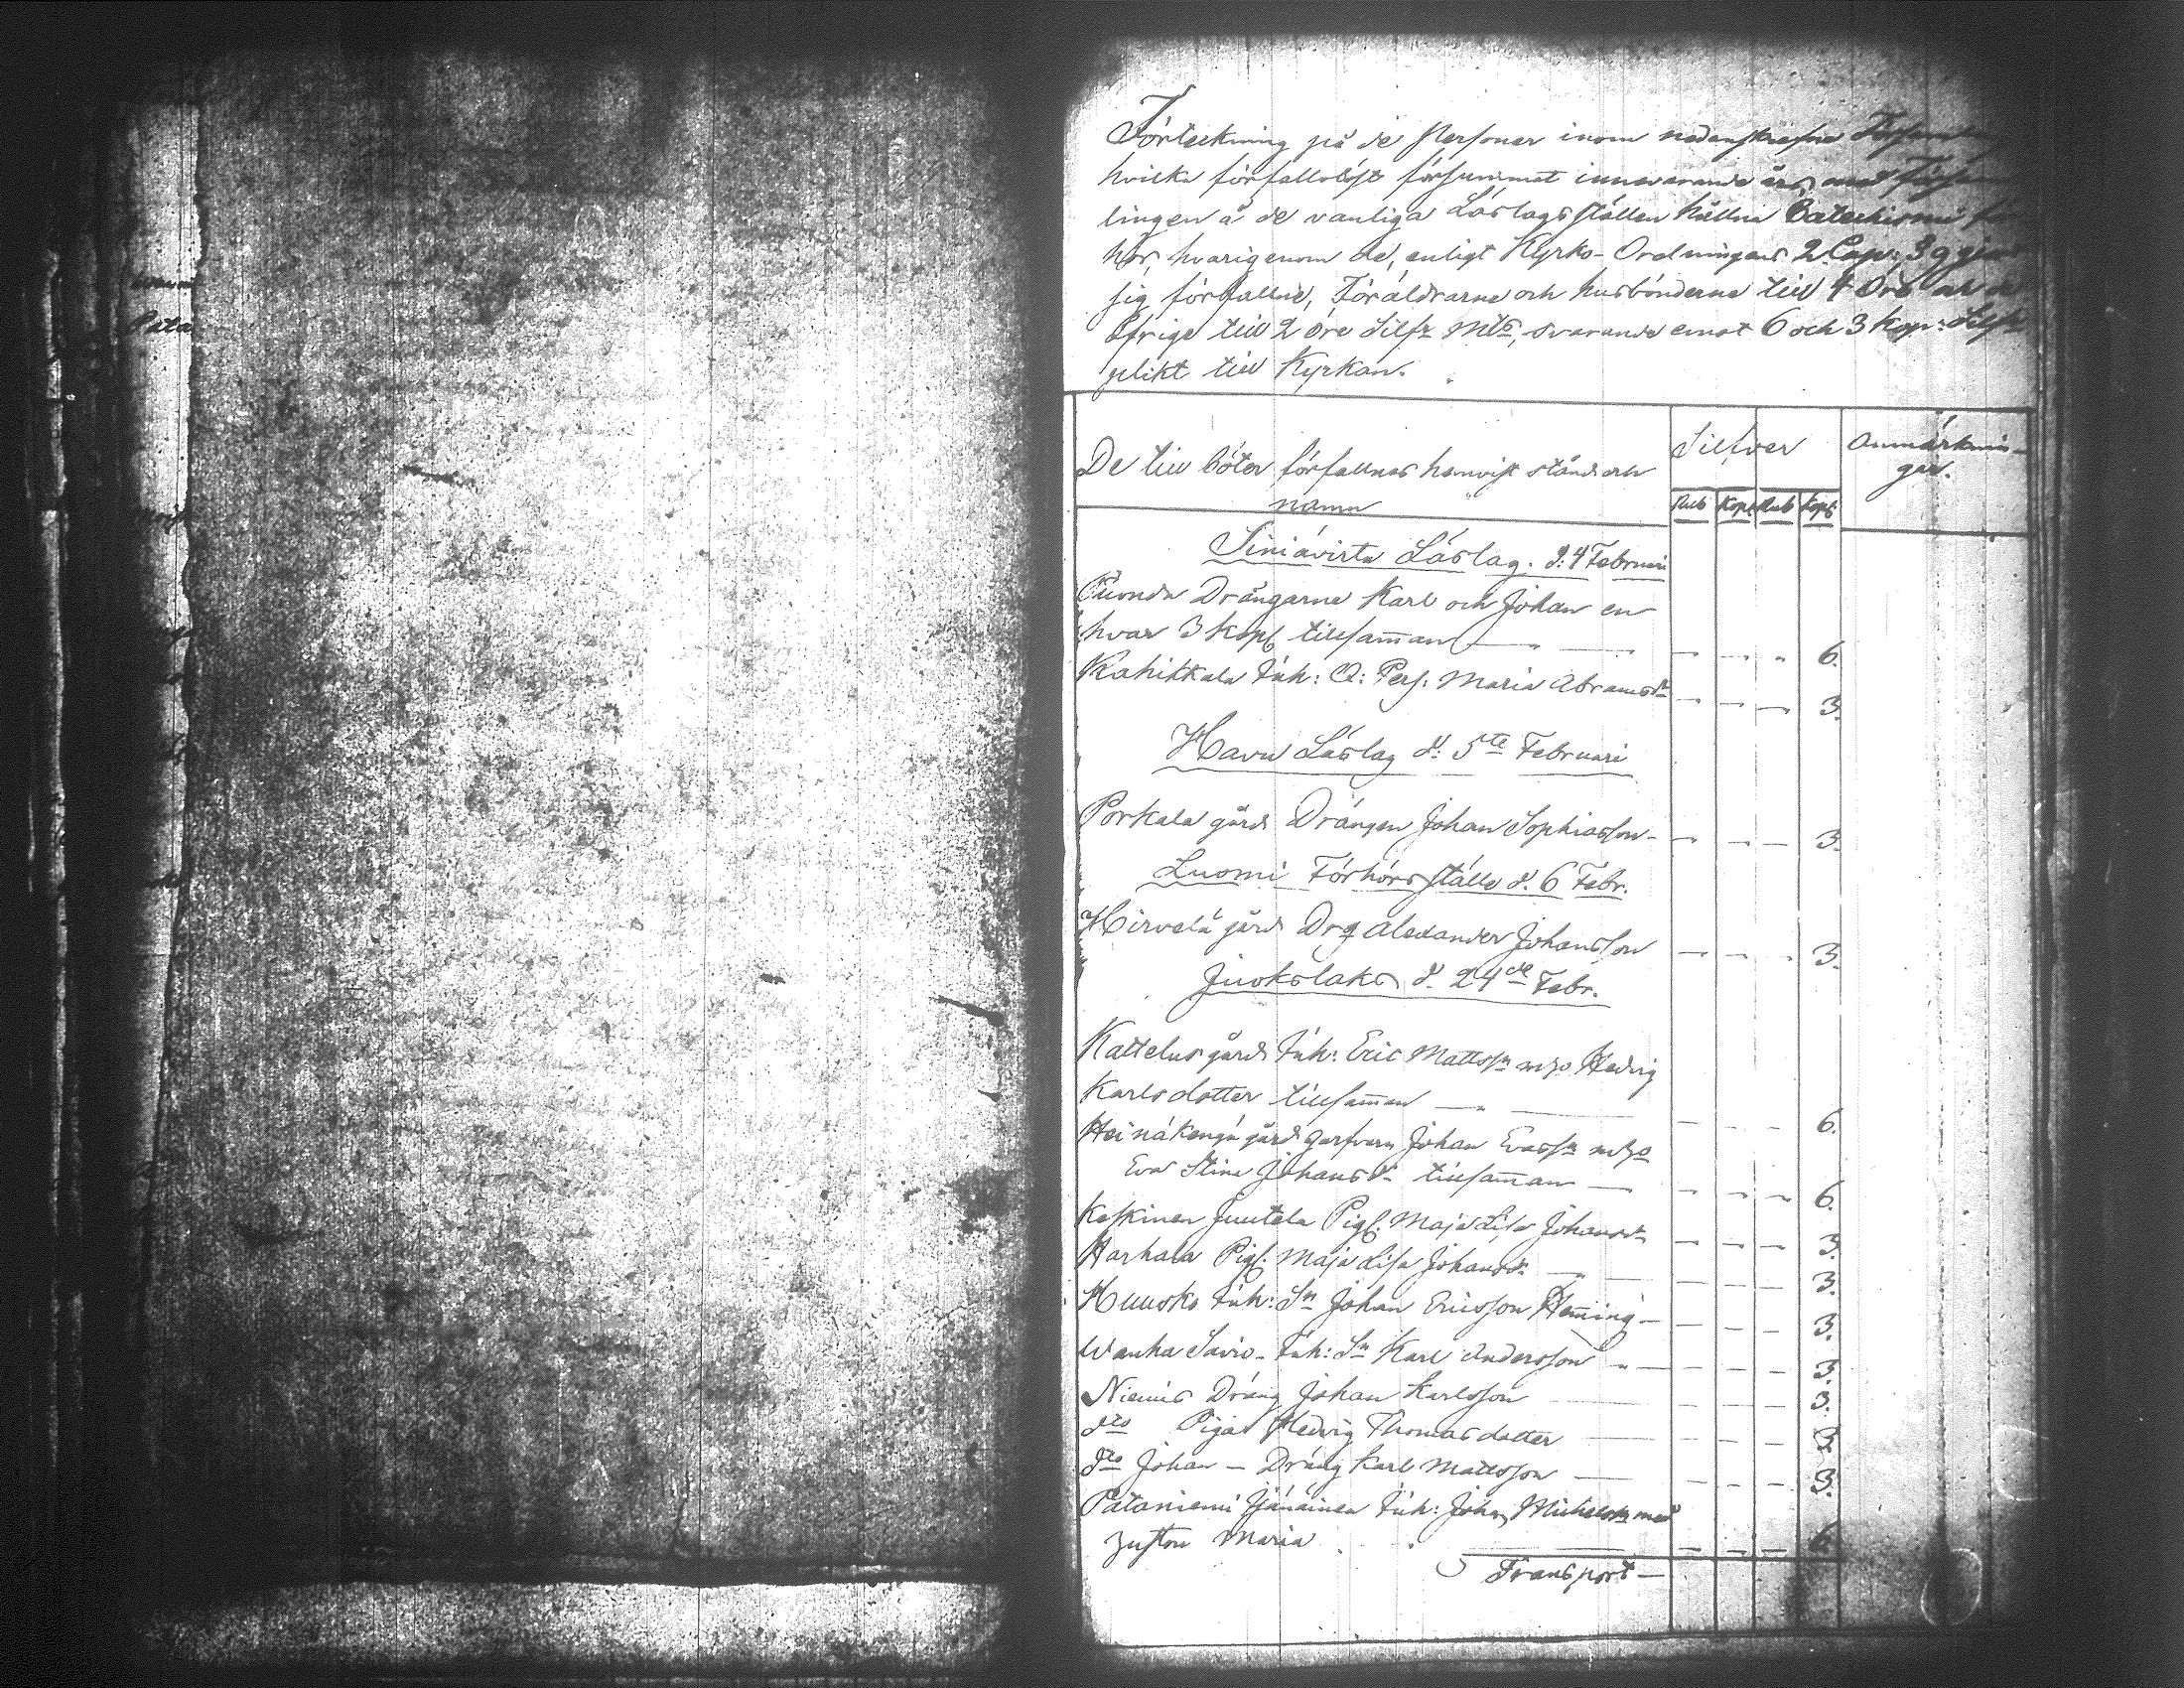 Pata
Förteckning på de Personer inom nedanskrefne
hvilka förfallolöst försummat innevarande år,
lingen å de vanliga Läslagsställen hållna Catechismi
hör, hvarigenom de, enligt Kyrko-Ordningens 2 Cap: 3 §
sig förfallne, Föräldrarne och husbönderne till 4 öre
öfrige till 2 öre Silfr Mt, svarande emot 6 och 3 kop: Silfr
plikt till Kyrkan.
De till böter förfallnas hemvist stånd och
namn
Silfver
Anmärknin-
gar.
Rub Kopk Rub Kopk
Siniävirta Läslag. d: 4 Februari
Drängarne Karl och Johan en
hvar 3 Kopk tillsam̄an 6.
Kahikkala Inh: Q: Pers: Maria Abramsdr 3.
Havu Läslag d: 5te Februari
Porkala gård Drängen Johan Sophiasson 3.
Luomi Förhörsställe d. 6 Febr.
Hirvelä gård Drg Alexander Johansson 3.
Juokslaks d. 24de Febr.
Kattelus gård Inh: Eric Mattssn Hedvig
Karlsdotter tillsam̄an 6.
gård Johan Evassn
Eva Stina Johansdr tillsam̄an 6.
Keskinen Juutela Pig. Maja Lisa Johansdr 3.
Harhala Pig. Maja Lisa Johansdr 3.
Huusko Inh: Sn Johan Ericsson Hem̄ing 3.
Wanha Savio Inh: Sn Karl Andersson 3.
Niemis Dräng Johan Karlsson 3.
dto Pigan Hedvig Thomasdotter 3.
dto Johan - Dräng Karl Mattsson 3.
Pataniemi Inh: Johan Michelsn med
hustru Maria 6.
Transport